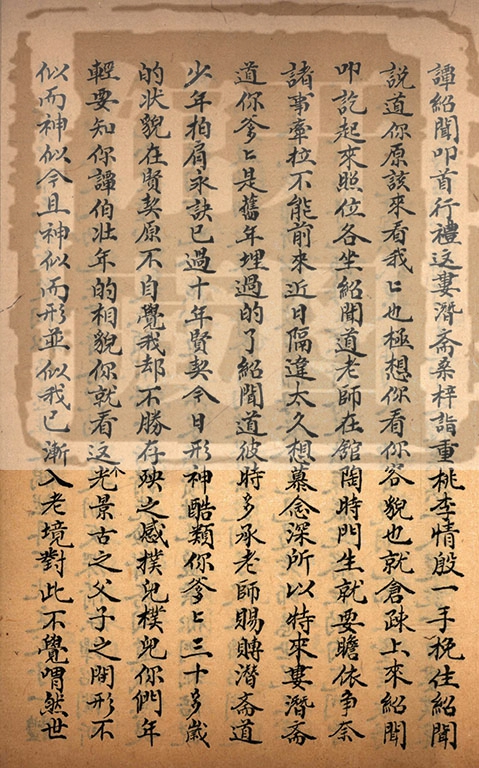 譚紹聞叩首行禮这婁潛斋桑梓誼重桃李情殷一手挽住紹聞
説道你原該來看我〻也極想你看你容貌也就倉踈上來紹聞
叩訖起來照位各坐紹聞道老師在舘陶時門生就要瞻依争奈
諸事牽拉不能前來近日隔違太久想慕念深所以特來婁潛斋
道你爹〻是舊年埋過的了紹聞道彼時多承老師賜賻潛斋道
少年拍肩永訣已過十年賢契今日形神酷類你爹〻三十多歲
的状貌在賢契原不自覺我却不勝存殁之感撲兒樸兒你們年
輕要知你譚伯壯年的相貌你就看这个光景古之父子之間形不
似而神似今且神似而形並似我已漸入老境對此不覺喟然世